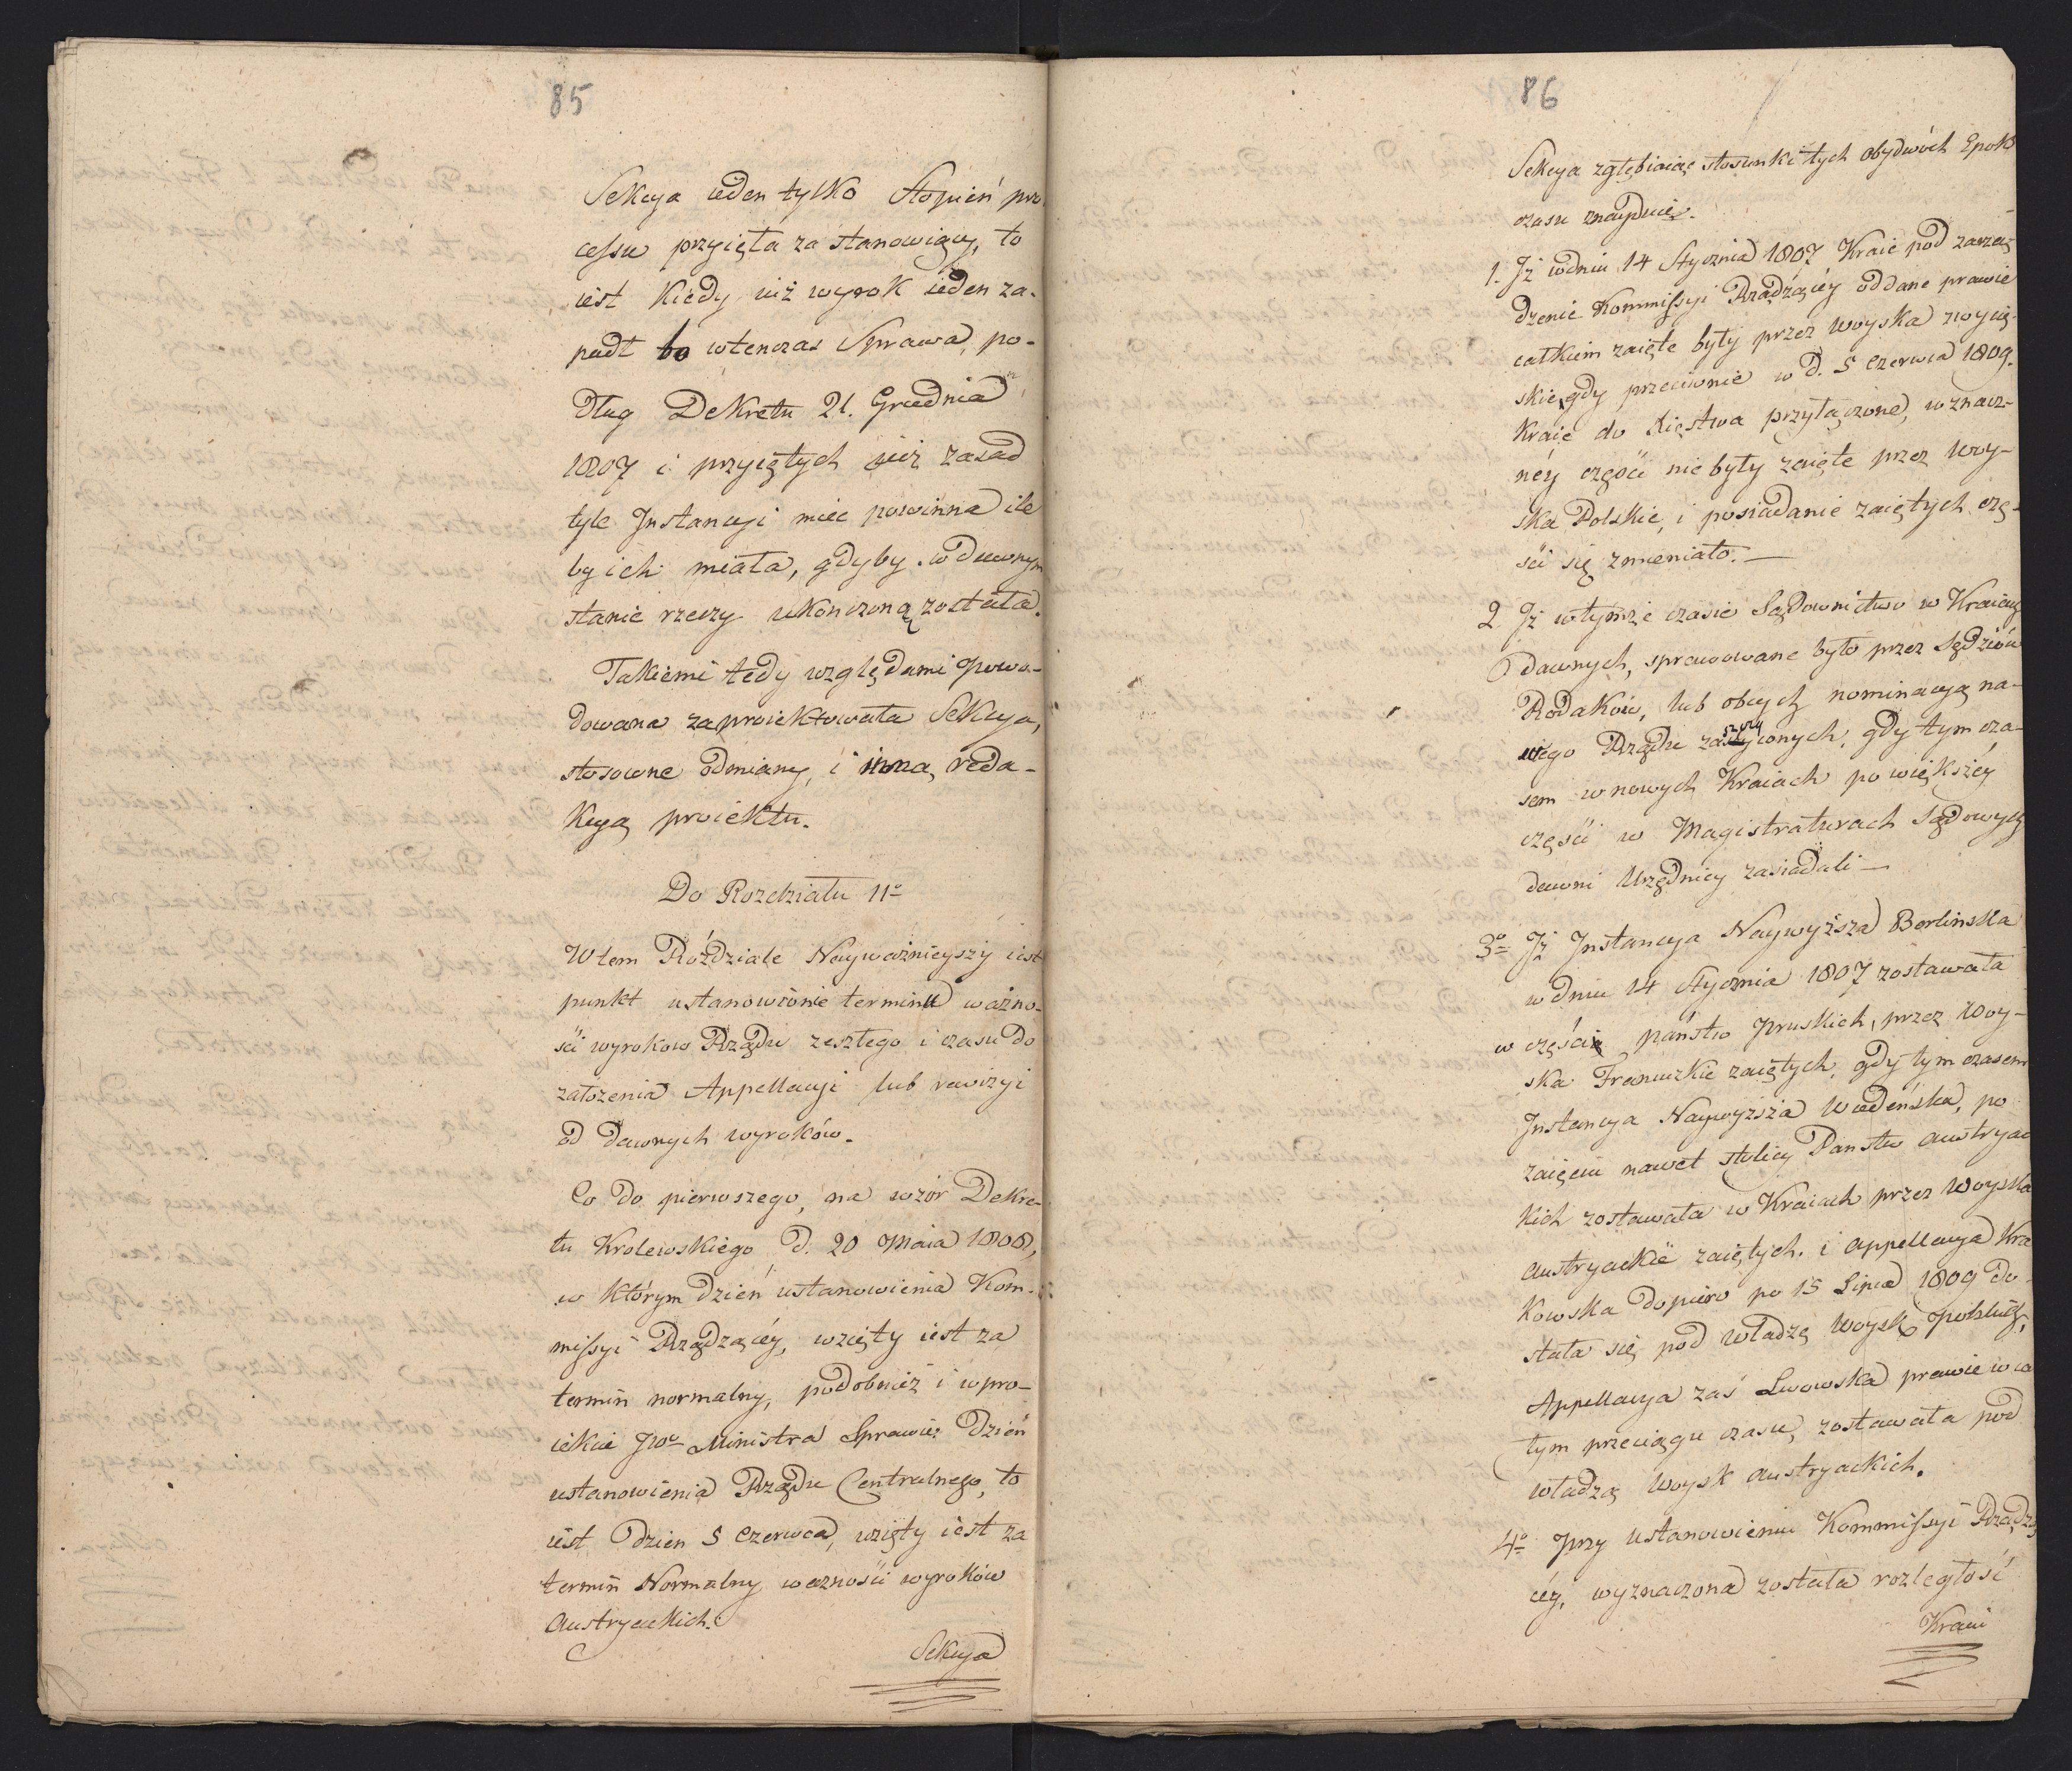 85
Sekcya ieden tylko Stopień pro
cessu przyięta za stanowiący, to
iest kiedy iuż wyrok ieden za-
padł bo wtenczas Sprawa, po-
dług Dekretu 21. Grudnia
1807 i przyiętych iuż zasad
tyle Instancyi miec powinna ile
by ich miała, gdyby w dawnym
stanie rzeczy ukończoną została.
Takiemi tedy względami powo-
dowana zaproiektowała Sekcya,
stosowne odmiany, i inną reda-
kcyą proiektu.
Do Rozdziału 11º
W tem Róździale Nayważnieyszy iest
punkt ustanowienie terminu ważno-
ści wyrokow Rządu zeszłego i czasu do
założenia Appellacyi lub rewizyi
od dawnych wyroków.
Co do pierwszego, na wzór Dekre-
tu Krolewskiego d. 20 Maia 1808,
w którym dzień ustanowienia Kom-
missyi Rządzącéy, wzięty iest za
termin normalny, podobnież i w pro-
iekcie JWº Ministra Sprawie: dzień
ustanowienia Rządu Centralnego, to
iest dzien 5 Czerwca, wzięty iest za
termin Normalny ważności wyroków
Austryackich.
Sekcya
86
Sekcya zgłębiaiąc stosunki tych obydwóch Epok
czasu znayduie.
1. Iż w dniu 14 Stycznia 1807 Kraie pod zarzą
dzenie Kommissyi Rządzącéy oddane prawie
całkiem zaięte były przez woyska zwycię-
skie, gdy przeciwnie w d. 5 Czerwca 1809.
Kraie do Xięstwa przyłączone, w znacz-
néy części nie były zaięte przez woy-
ska Polskie, i posiadanie zaiętych czę-
ści się zmieniało.—
2. Iż w tymże czasie Sądownictwo w Kraiach
dawnych, sprawowane było przez Sędziów
Rodaków, lub obcych nominacyą no-
wego Rządu zaszczyconych, gdy tym cza-
sem w nowych Kraiach po większéy
części w Magistraturach Sądowych
dawni Urzędnicy zasiadali —
3º Iż Instancya Naywyższa Berlinska
w dniu 14 Stycznia 1807 zostawała
w części państw Pruskich, przez Woy-
ska Francuzkie zaiętych, gdy tym czasem
Instancya Naywyższa Wiedeńska, po
zaięciu nawet stolicy Panstw Austryac
kich zostawała w Kraiach przez Woyska
Austryackie zaiętych. i Appellacya Kra
kowska dopiero po 15 Lipca 1809 do-
stała się pod władzę Woysk Polskich,
Appellacya zaś Lwowska prawie w ca
łym przeciągu czasu, zostawała pod
władzą Woysk Austryackich.
4º Przy ustanowieniu Kommissyi Rządzą
céy, wyznaczona została rozległość
Kraiu